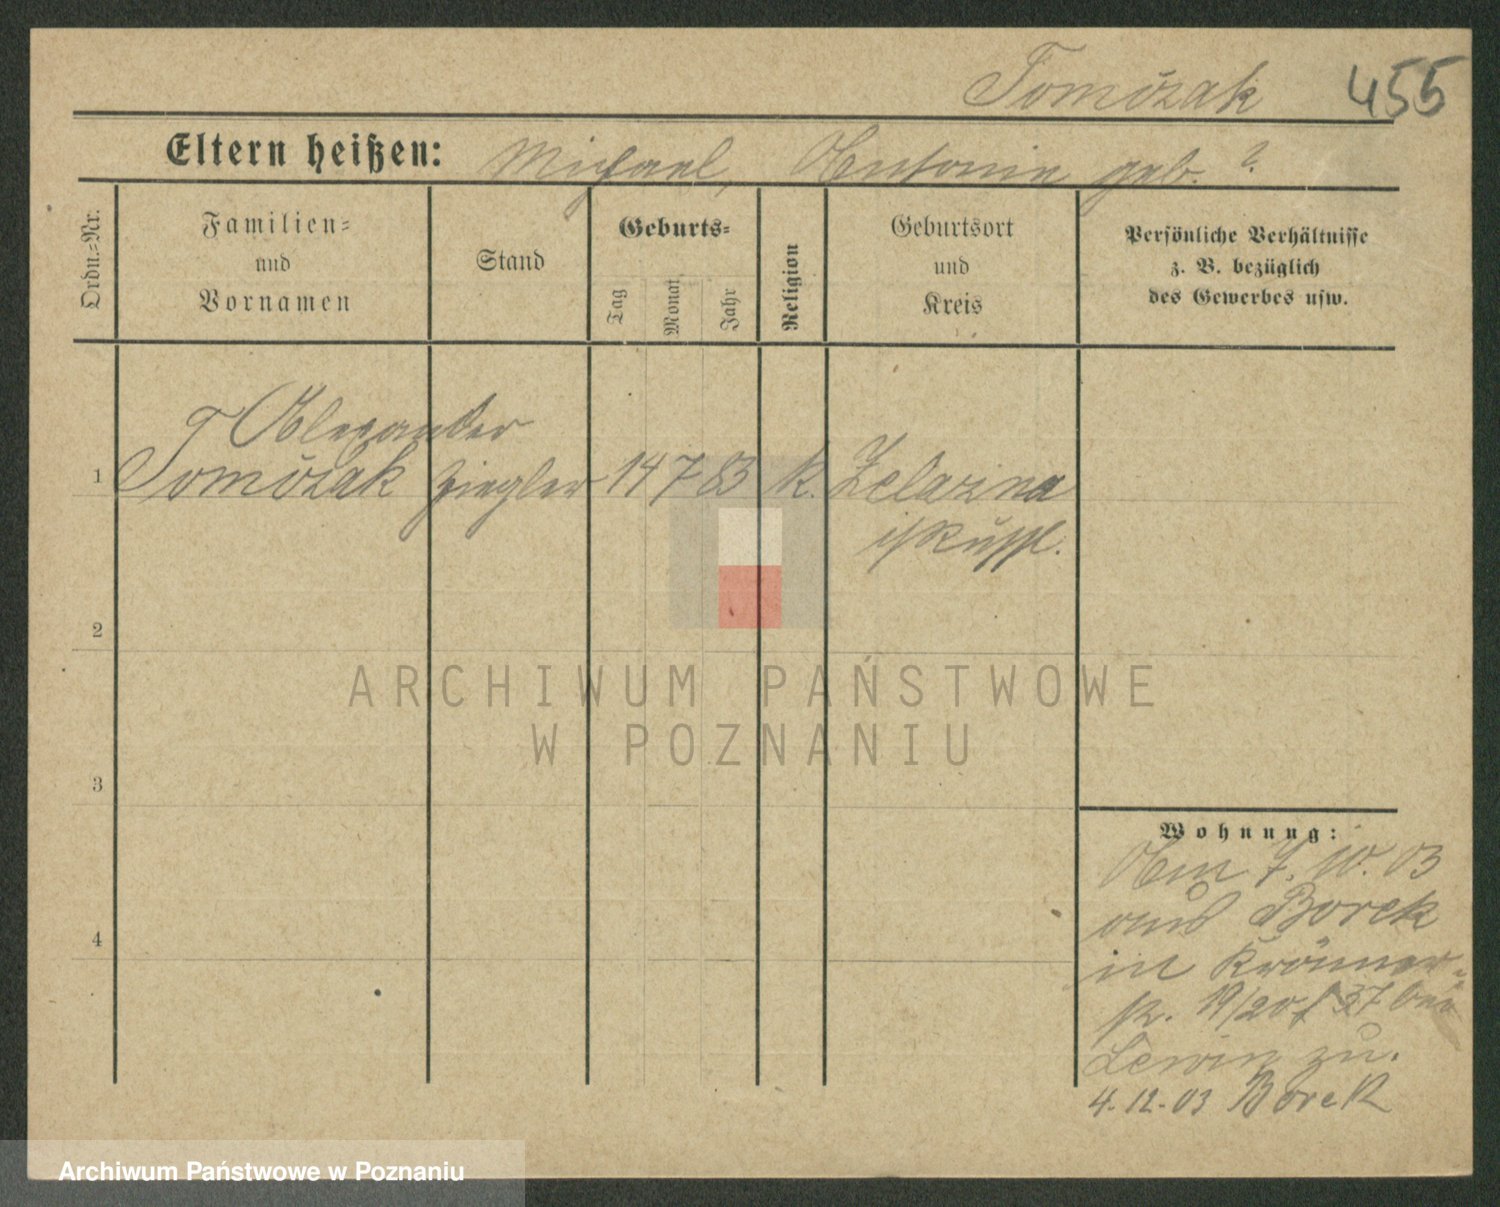 Tomózak 455
Eltern heißen: Michael, Antonin geb. ?
Ordn.-Nr.
Familien-
und
Vornamen
Stand
Geburts-
Tag
Monat
Jahr
Religion
Geburtsort
und
Kreis
Persönliche Verhältnisse
z. B. bezüglich
des Gewerbes usw.
Alexander
1 Tomózak Ziegler 14 7 83 k. Zelazna
2
3
4
Wohnung:
Am 7. 10. 03
aus Borek
in Krämer-
str. 19/20 f 37 bei
Lewin zu.
4.12.03 Borek
ARCHIWUM PAŃSTWOWE
W POZNANIU
Archiwum Państwowe w Poznaniu